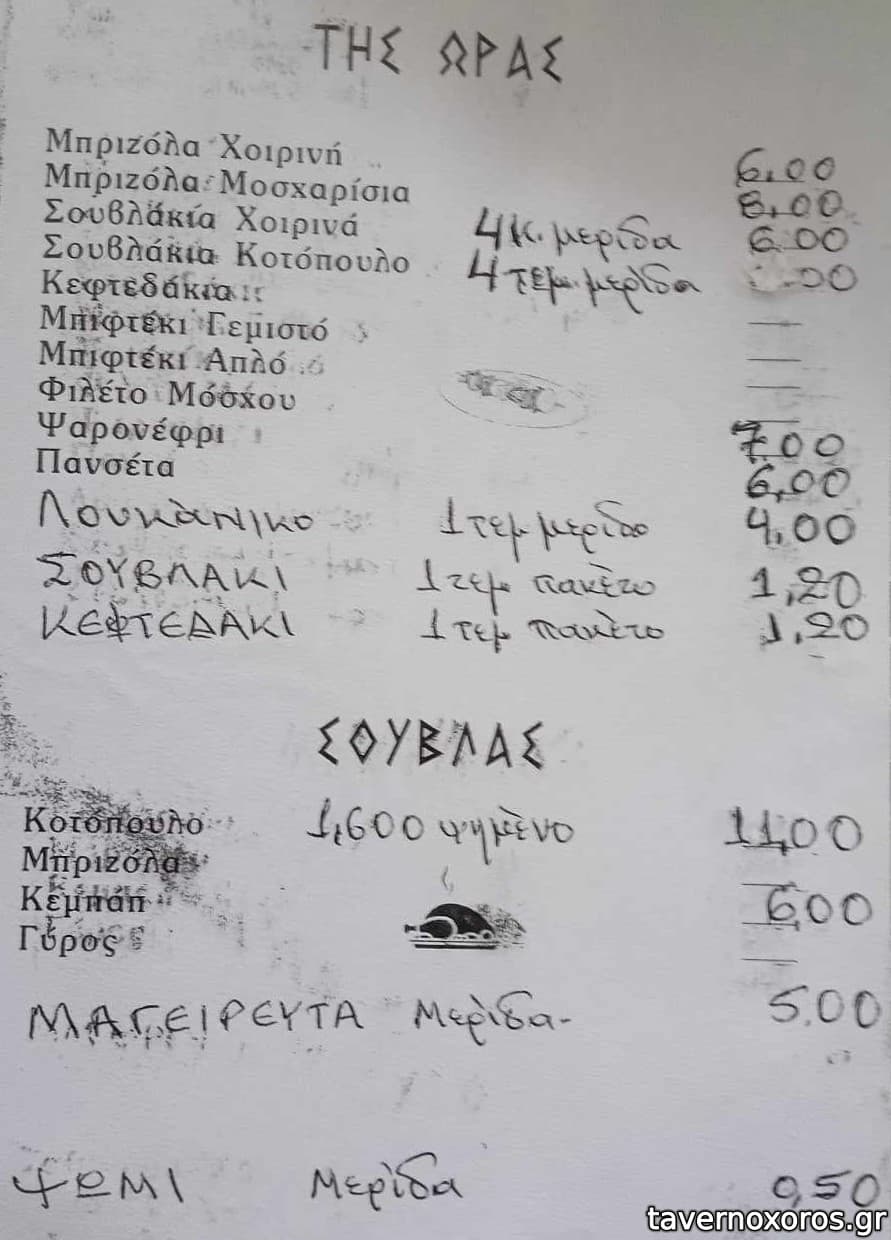 ΤΗΣ ΩΡΑΣ
Μπριζόλα Χοιρινή 6,00
Μπριζόλα Μοσχαρίσια 8,00
Σουβλάκια Χοιρινά 4 κ. μερίδα 6.00
Σουβλάκια Κοτόπουλο 4 τεμ. μερίδα .00
Κεφτεδάκια —
Μπιφτέκι Γεμιστό —
Μπιφτέκι Απλό —
Φιλέτο Μόσχου —
Ψαρονέφρι 7.00
Πανσέτα 6,00
Λουκάνικο 1 τεμ μερίδα 4,00
ΣΟΥΒΛΑΚΙ 1 τεμ πακέτο 1,20
ΚΕΦΤΕΔΑΚΙ 1 τεμ πακέτο 1,20
ΣΟΥΒΛΑΣ
Κοτόπουλο 1,600 ψημένο 11,00
Μπριζόλα —
Κεμπάπ 6,00
Γύρος —
ΜΑΓΕΙΡΕΥΤΑ Μερίδα- 5.00
ΨΩΜΙ Μερίδα 0,50
tavernoxoros.gr